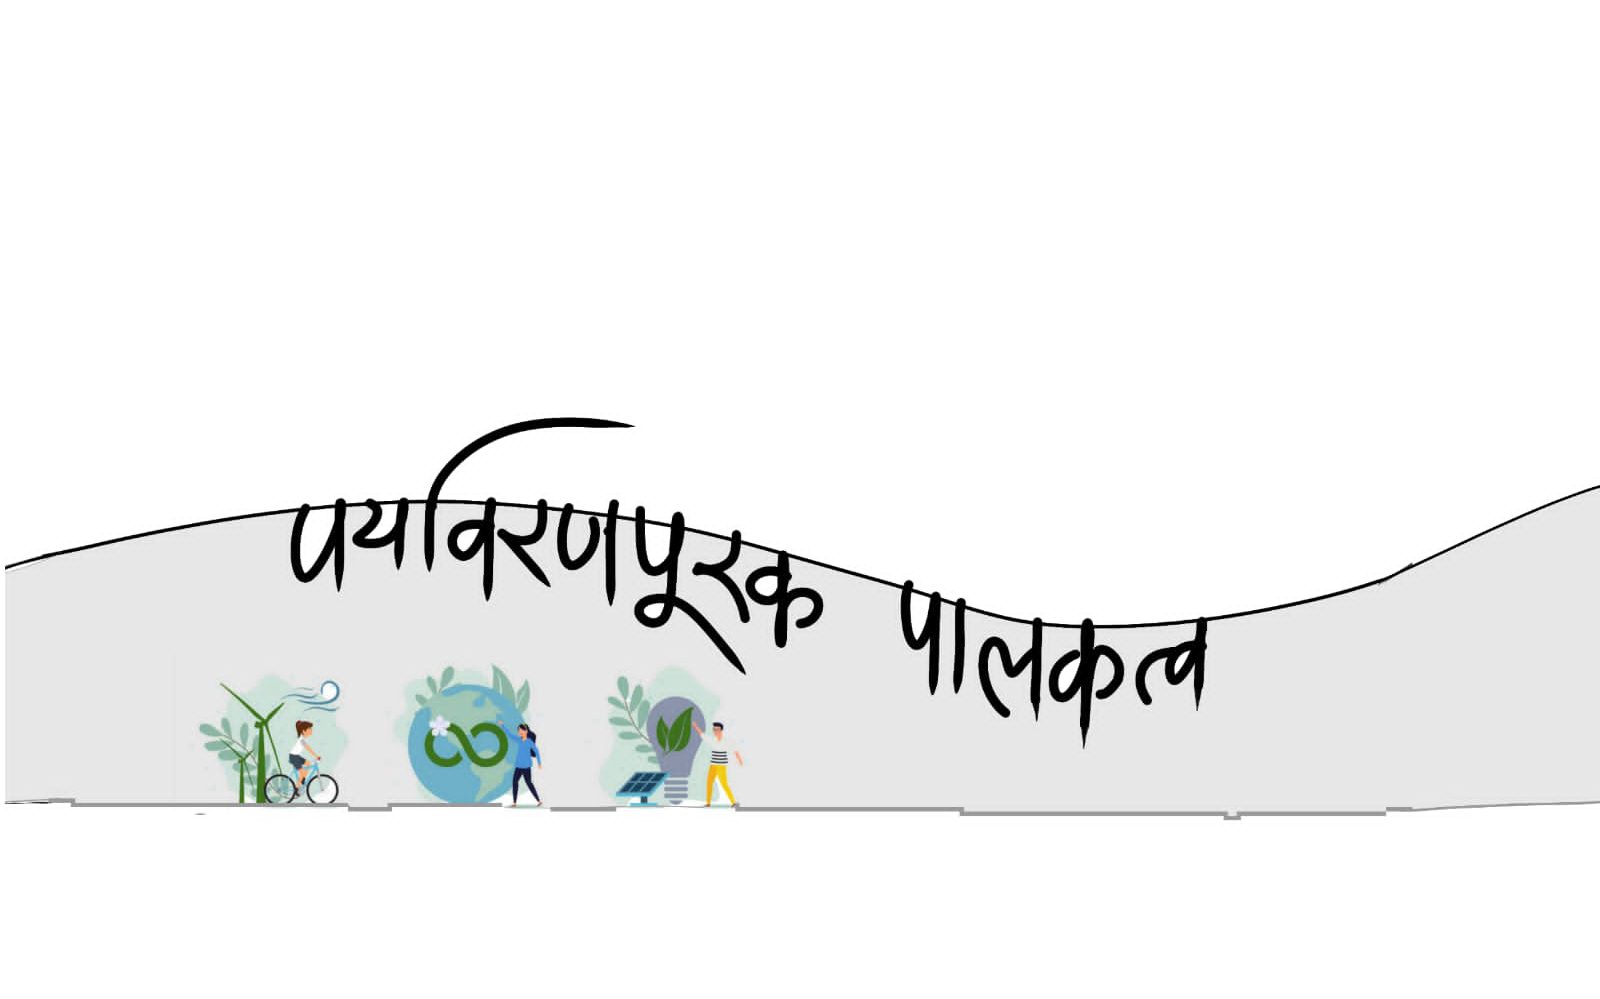 पर्यावरणपूरक पालकत्व